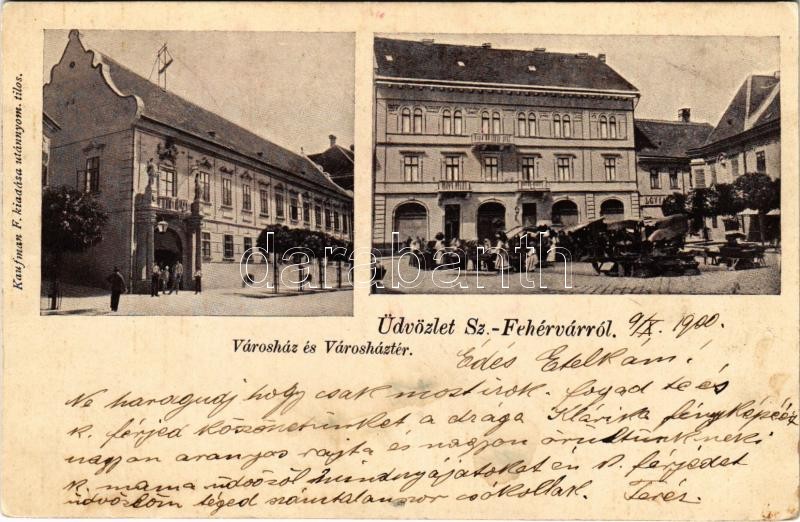 Kaufman F. kiadása utánnyom. tilos.
darabanth
Üdvözlet Sz.-Fehérvárról. 9/X. 1900.
Városház és Városháztér.
Édes Etelkám!
Ne haragudj hogy csak most irok. fogad te és
k. férjed köszönetünket a draga Klárika fényképéért
nagyon aranyos rajta és nagyon örültünk neki
k. mama üdvözöl mindnyájatokat én k. férjedet
üdvözlöm téged számtalanszor csókollak. Teréz.